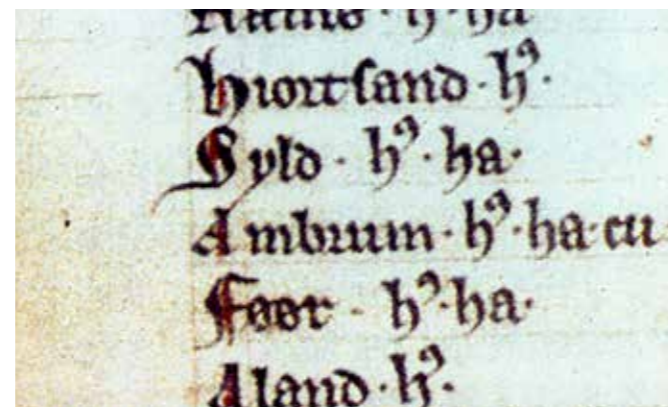 hiortsand · hꝰ ·
Syld · hꝰ · ha ·
Ambrum · hꝰ · ha · cu
Føør · hꝰ · ha ·
Aland · hꝰ ·